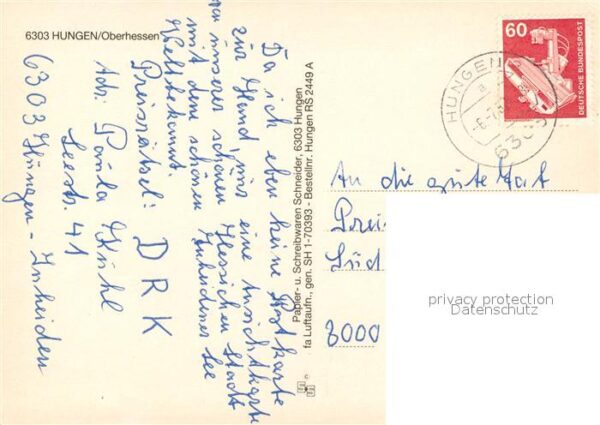 6303 HUNGEN/Oberhessen
Da ich eben keine Postkarte
zur Hand, nur eine Ansichtskarte
von unserer schönen Hessischen Stadt
mit dem schönen Inheidener See
Weltbekannt.
Preisrätsel: DRK
Adr. Paula Kühl
Seestr. 41
6303 Hungen-Inheiden
Papier- u. Schreibwaren Schneider, 6303 Hungen
fa Luftaufn., gen. SH 1-70393 - Bestellnr. Hungen RS 2449 A
60
DEUTSCHE BUNDESPOST
HUNGEN
a
6303
An die gute Tat
Süd
8000
privacy protection
Datenschutz